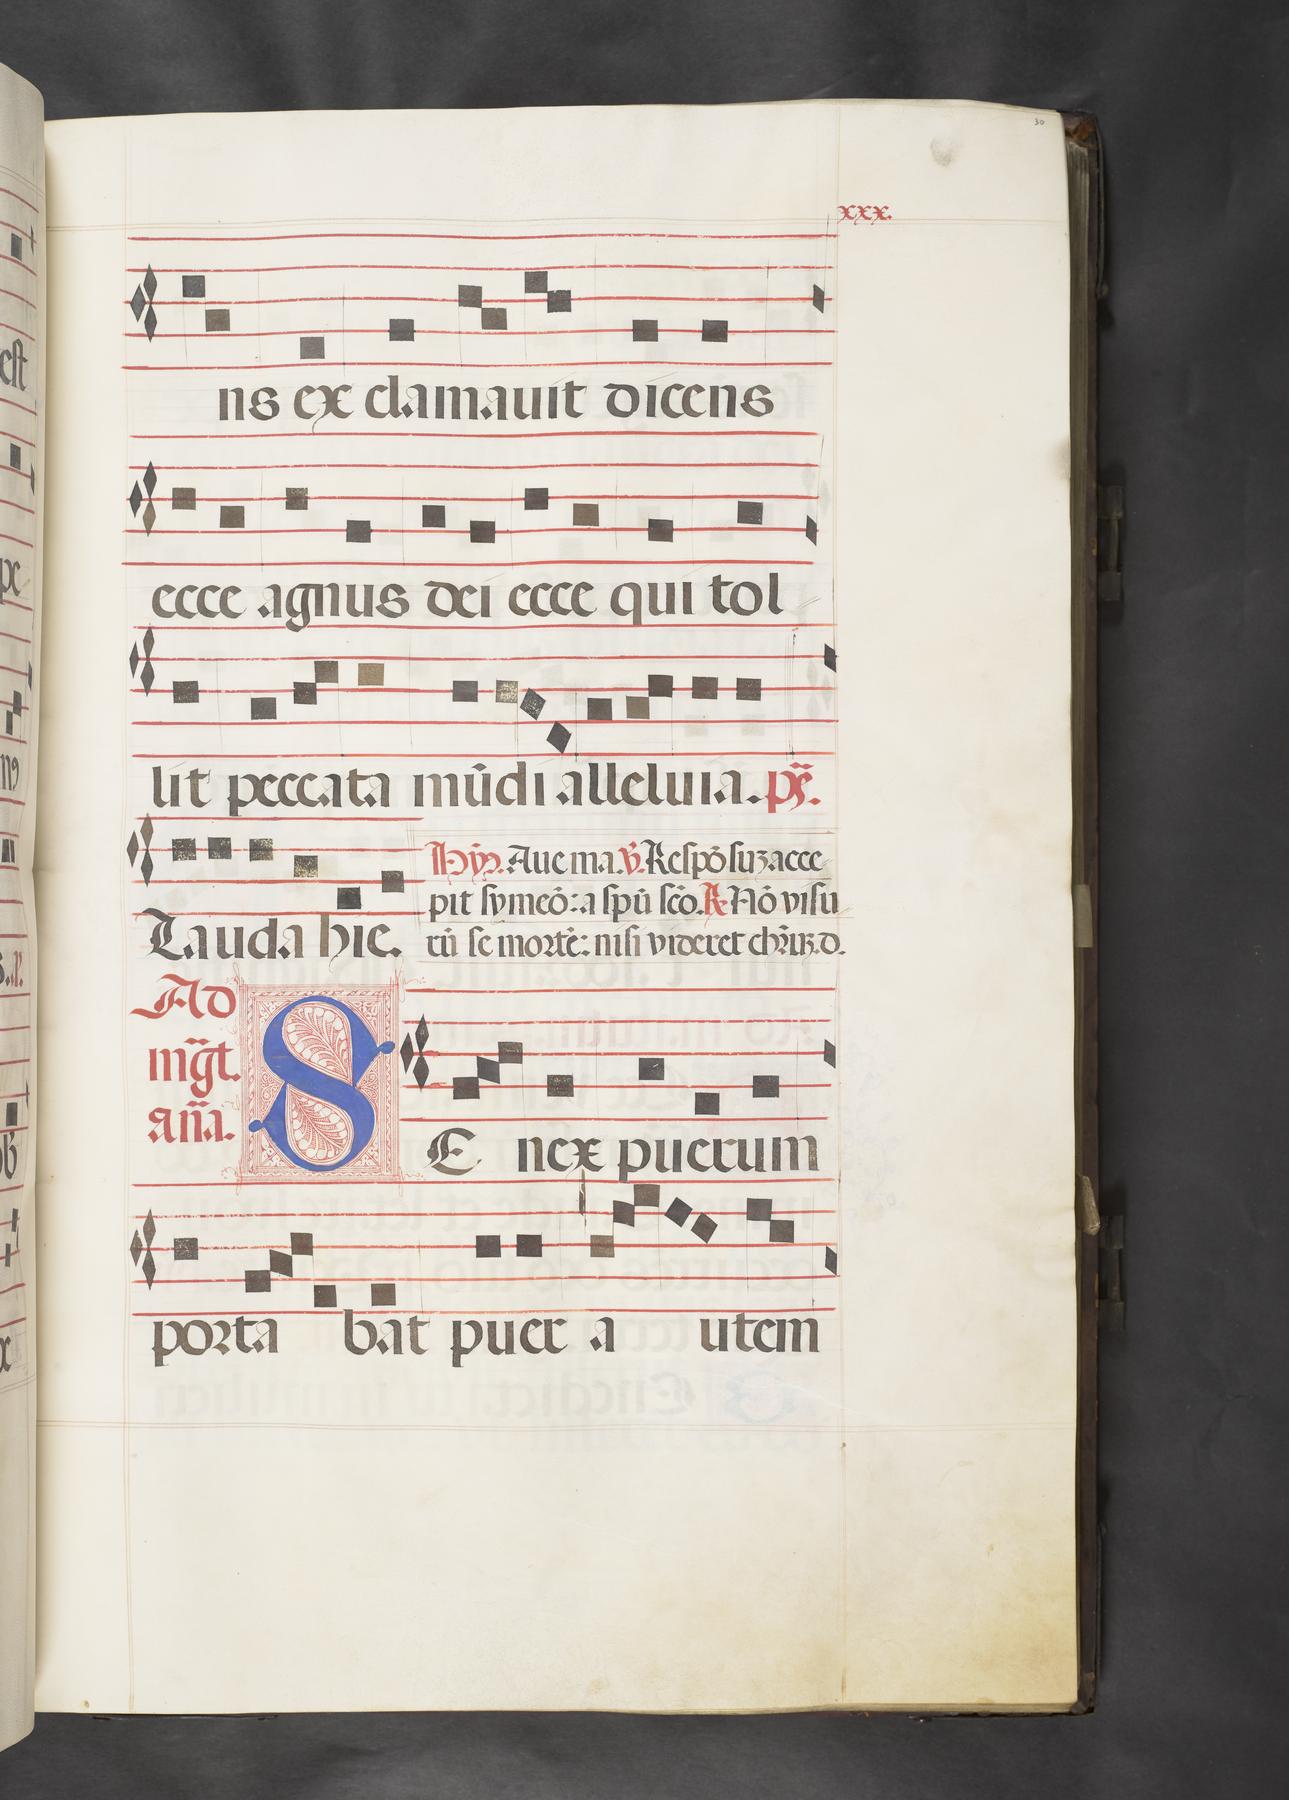 30
xxx.
ns ex clamauit dicens
ecce agnus dei ecce qui tol
lit peccata mũdi alleluia. ps̃.
Hỹ. Aue ma. ỹ. Respõsuʒ acce
pit symeõ: a spũ scõ. R Nõ visu
Lauda hie.
rũ se mortẽ: nisi videret chr̃uʒ.d.
Ad
mg̃t.
añа.
SE nex puerum
porta bat puer a utem